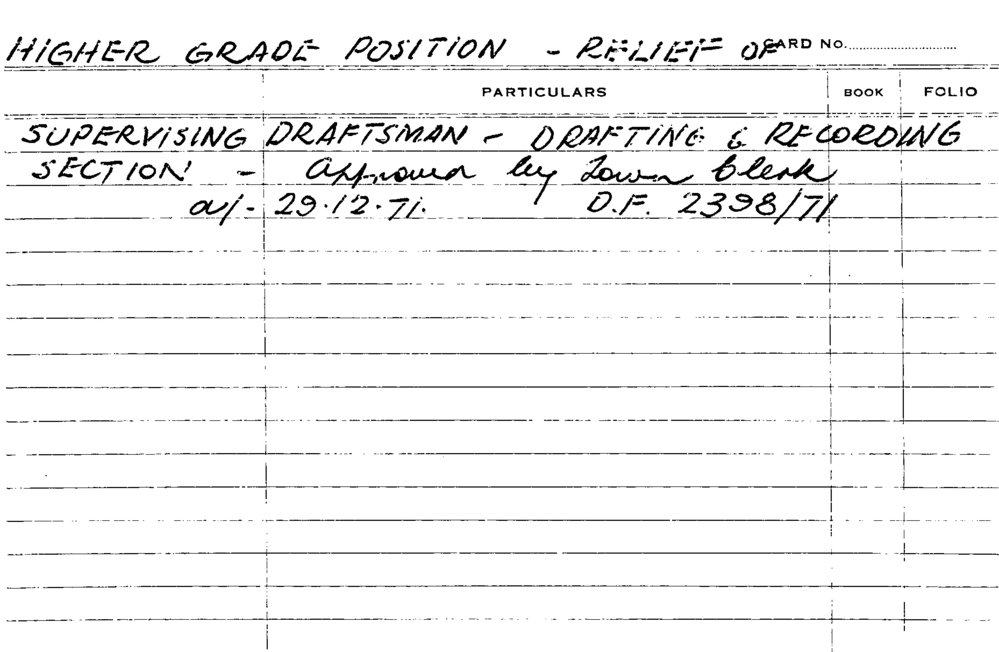 HIGHER GRADE POSITION - RELIEF OF CARD No.
PARTICULARS BOOK FOLIO
SUPERVISING DRAFTSMAN - DRAFTING & RECORDING
SECTION - Approved by Town Clerk
29.12.71. D.F. 2398/71